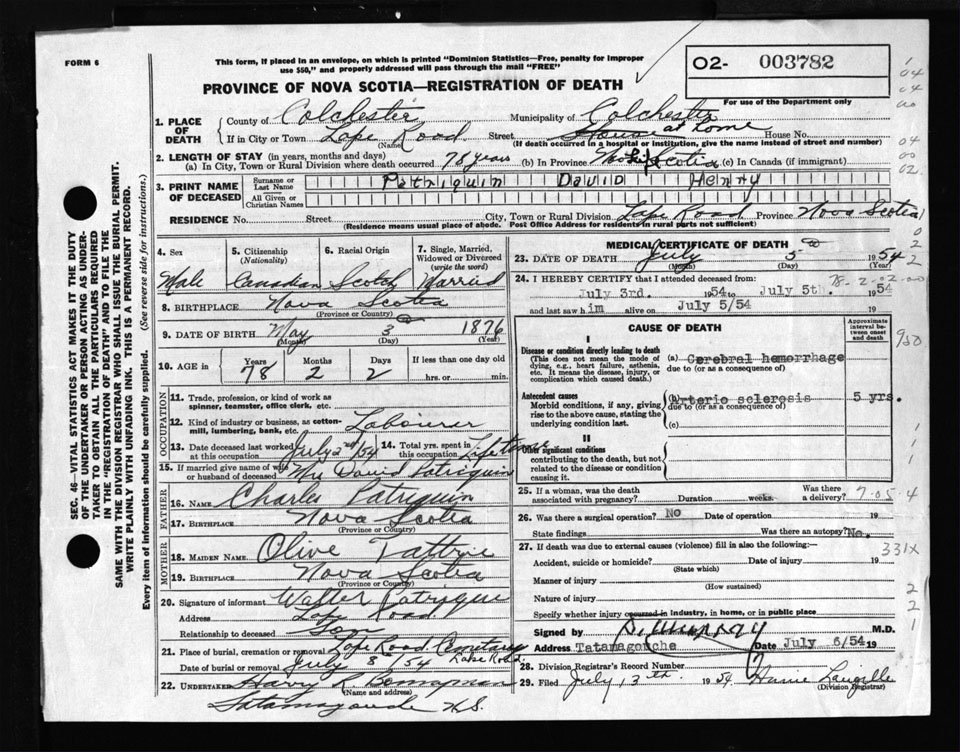 FORM 6
This form, if placed in an envelope, on which is printed "Dominion Statistics—Free, penalty for improper
use $50," and properly addressed will pass through the mail "FREE"
O2- 003782
For use of the Department only
PROVINCE OF NOVA SCOTIA—REGISTRATION OF DEATH
1. PLACE OF DEATH
County of Colchester Municipality of Colchester
If in City or Town Lake Road Street House at home House No.
(Name) (If death occurred in a hospital or institution, give the name instead of street and number)
2. LENGTH OF STAY (in years, months and days)
(a) In City, Town or Rural Division where death occurred 78 years (b) In Province Scotia (c) In Canada (if immigrant)
3. PRINT NAME OF DECEASED
Surname or Last Name Patriquin David Henry
All Given or Christian Names
RESIDENCE No. Street City, Town or Rural Division Lake Road Province Nova Scotia
(Residence means usual place of abode. Post Office Address for residents in rural parts not sufficient)
4. Sex Male
5. Citizenship (Nationality) Canadian
6. Racial Origin Scotch
7. Single, Married, Widowed or Divorced (write the word) Married
8. BIRTHPLACE Nova Scotia
(Province or Country)
9. DATE OF BIRTH May 3 1876
(Month) (Day) (Year)
10. AGE in Years 78 Months 2 Days 2 If less than one day old hrs. or min.
OCCUPATION
11. Trade, profession, or kind of work as spinner, teamster, office clerk, etc.
12. Kind of industry or business, as cotton-mill, lumbering, bank, etc. Labourer
13. Date deceased last worked at this occupation July 2nd/54
14. Total yrs. spent in this occupation Life time
15. If married give name of wife or husband of deceased Mrs David Patriquin
FATHER
16. NAME Charles Patriquin
17. BIRTHPLACE Nova Scotia
(Province or Country)
MOTHER
18. MAIDEN NAME Olive Tattrie
19. BIRTHPLACE Nova Scotia
(Province or Country)
20. Signature of informant Walter Patriquin
Address Lake Road
Relationship to deceased Son
21. Place of burial, cremation or removal Lake Road Cemetary
Date of burial or removal July 8/54 Lake Road.
22. UNDERTAKER Harry R.
(Name and address)
Tatamagouche N.S.
MEDICAL CERTIFICATE OF DEATH
23. DATE OF DEATH July 5 1954
(Month) (Day) (Year)
24. I HEREBY CERTIFY that I attended deceased from:
July 3rd. 1954 to July 5th. 1954
and last saw him alive on July 5/54 19
CAUSE OF DEATH
Approximate interval between onset and death
I
Disease or condition directly leading to death
(This does not mean the mode of dying, e.g., heart failure, asthenia, etc. It means the disease, injury, or complication which caused death.)
(a) Cerebral hemorrhage
due to (or as a consequence of)
Antecedent causes
Morbid conditions, if any, giving rise to the above cause, stating the underlying condition last.
(b) Arterio sclerosis 5 yrs.
due to (or as a consequence of)
(c)
II
Other significant conditions
contributing to the death, but not related to the disease or condition causing it.
25. If a woman, was the death associated with pregnancy? Duration weeks. Was there a delivery?
26. Was there a surgical operation? No Date of operation 19
State findings Was there an autopsy? No.
27. If death was due to external causes (violence) fill in also the following:—
Accident, suicide or homicide? Date of injury 19
(State which)
Manner of injury
(How sustained)
Nature of injury
Specify whether injury occurred in industry, in home, or in public place
Signed by D. Murray M.D.
Address Tatamagouche Date July 6/54 19
28. Division Registrar's Record Number
29. Filed July 13th. 1954 Langille
(Division Registrar)
SEC. 46—VITAL STATISTICS ACT MAKES IT THE DUTY
OF THE UNDERTAKER OR PERSON ACTING AS UNDER-
TAKER TO OBTAIN ALL THE PARTICULARS REQUIRED
IN THE "REGISTRATION OF DEATH" AND TO FILE THE
SAME WITH THE DIVISION REGISTRAR WHO SHALL ISSUE THE BURIAL PERMIT.
WRITE PLAINLY WITH UNFADING INK. THIS IS A PERMANENT RECORD.
Every item of information should be carefully supplied. (See reverse side for instructions.)
04
04
00
04
00
02
78-2-02-00
950
7-05-4
331X
2
2
1